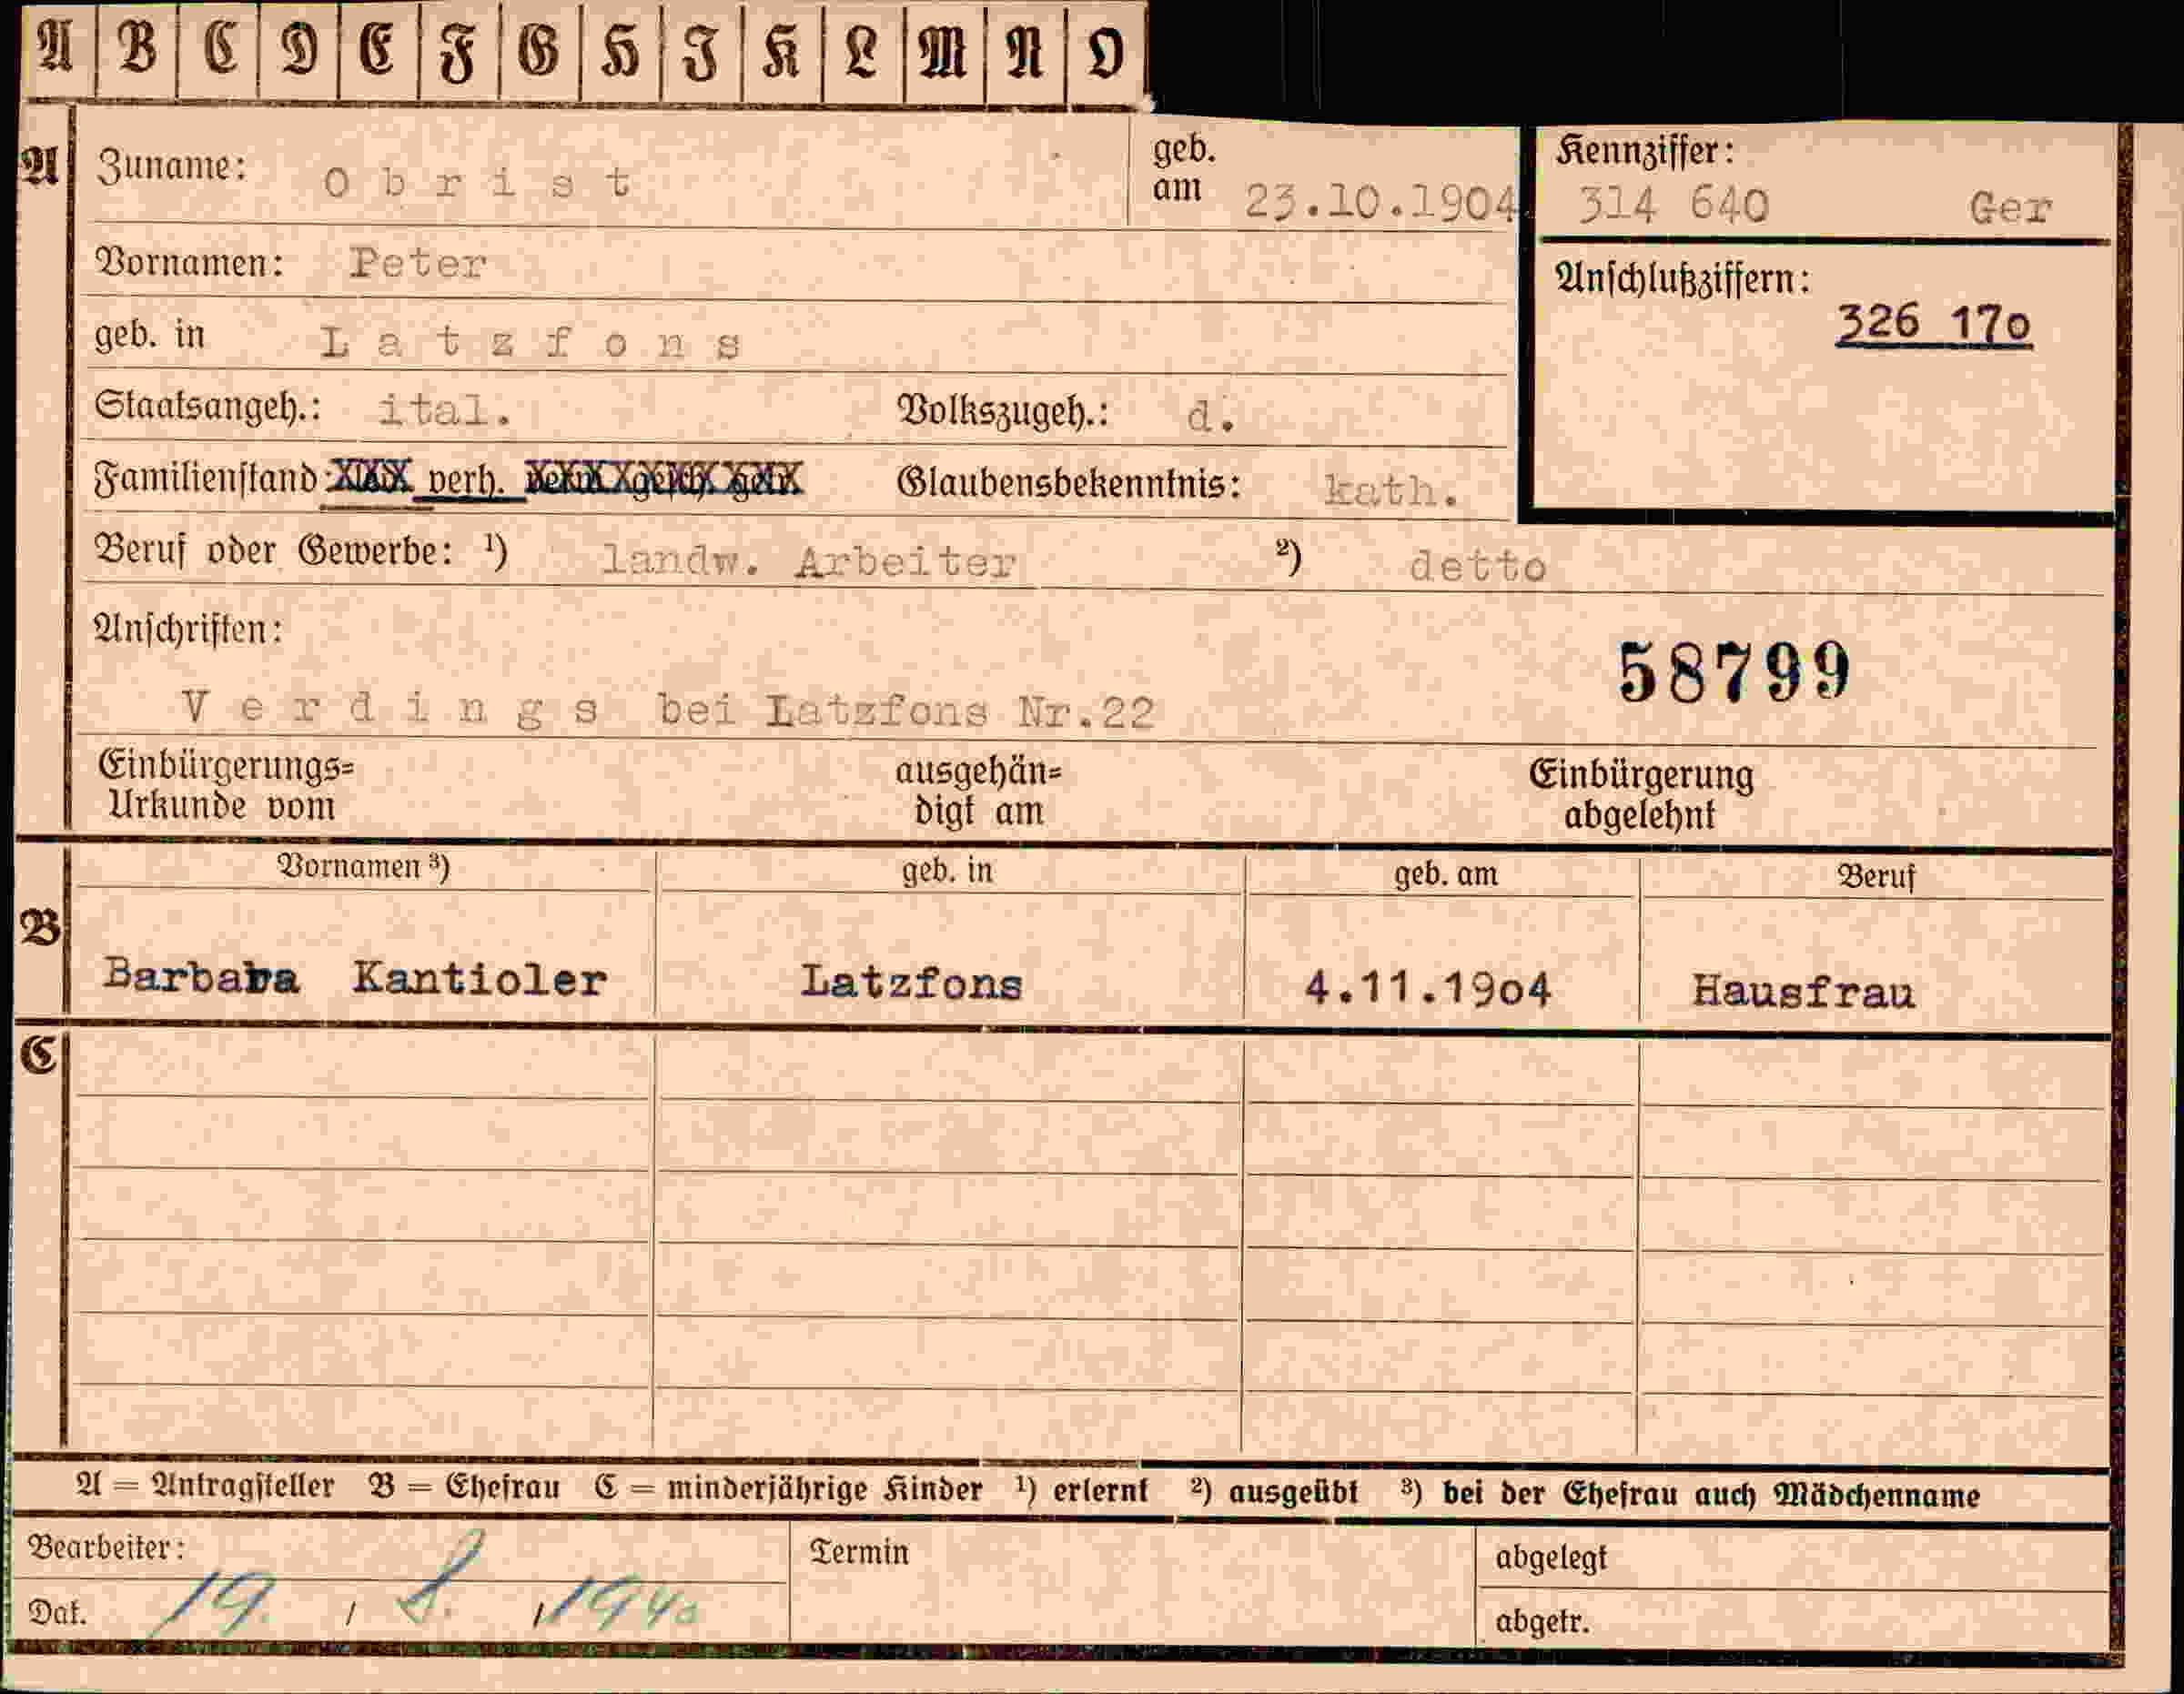 A B C D E F G H I K L M N O
A Zuname: Obrist geb. am 23.10.1904 Kennziffer: 314 640 Ger
Vornamen: Peter
geb. in Latzfons
Anschlußziffern: 326 17o
Staatsangeh.: ital. Volkszugeh.: d.
Familienstand: verh. Glaubensbekenntnis: kath.
Beruf oder Gewerbe: ¹) landw. Arbeiter ²) detto
Anschriften:
58799
Verdings bei Latzfons Nr.22
Einbürgerungs= ausgehän= Einbürgerung
Urkunde vom digt am abgelehnt
Vornamen ³) geb. in geb. am Beruf
B
Barbara Kantioler Latzfons 4.11.19o4 Hausfrau
C
A = Antragsteller B = Ehefrau C = minderjährige Kinder ¹) erlernt ²) ausgeübt ³) bei der Ehefrau auch Mädchenname
Bearbeiter: Termin abgelegt
Dat. 19. / 8. / 1940 abgetr.